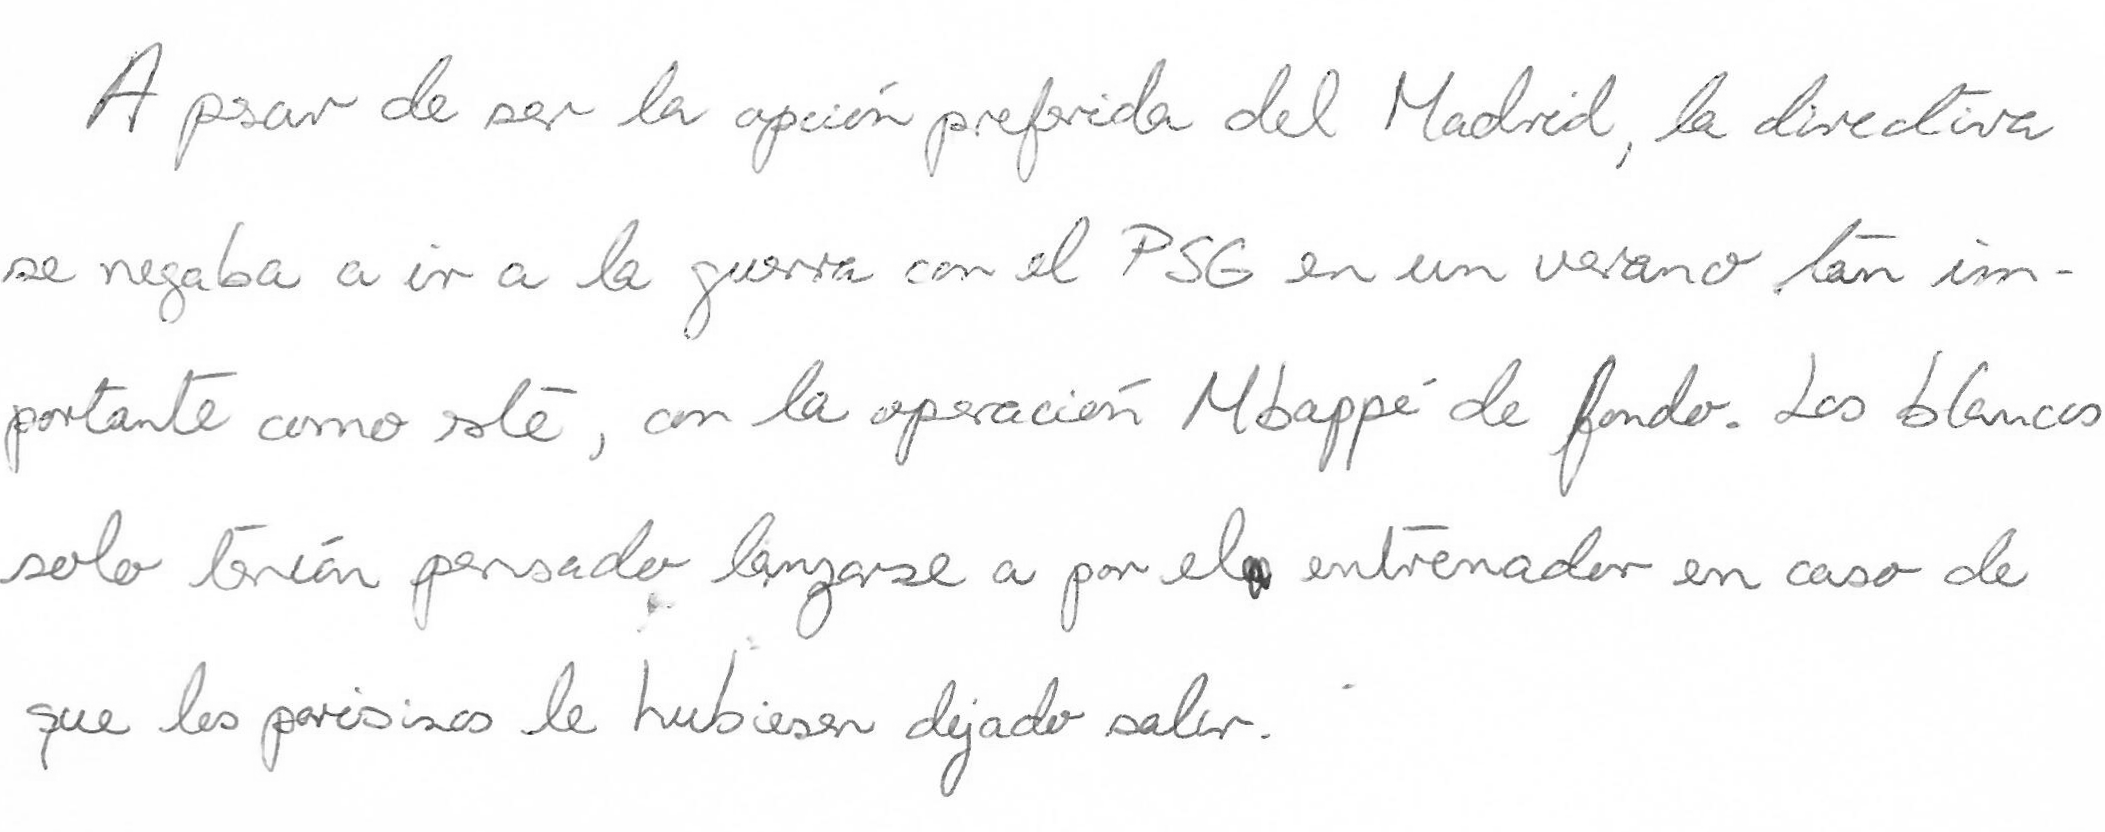 A pesar de ser la opción preferida del Madrid, la directiva
se negaba a ir a la guerra con el PSG en un verano tan im-
portante como este, con la operación Mbappé de fondo. Los blancos
solo tenían pensado lanzarse a por el entrenador en caso de
que los parisinos le hubiesen dejado salir.